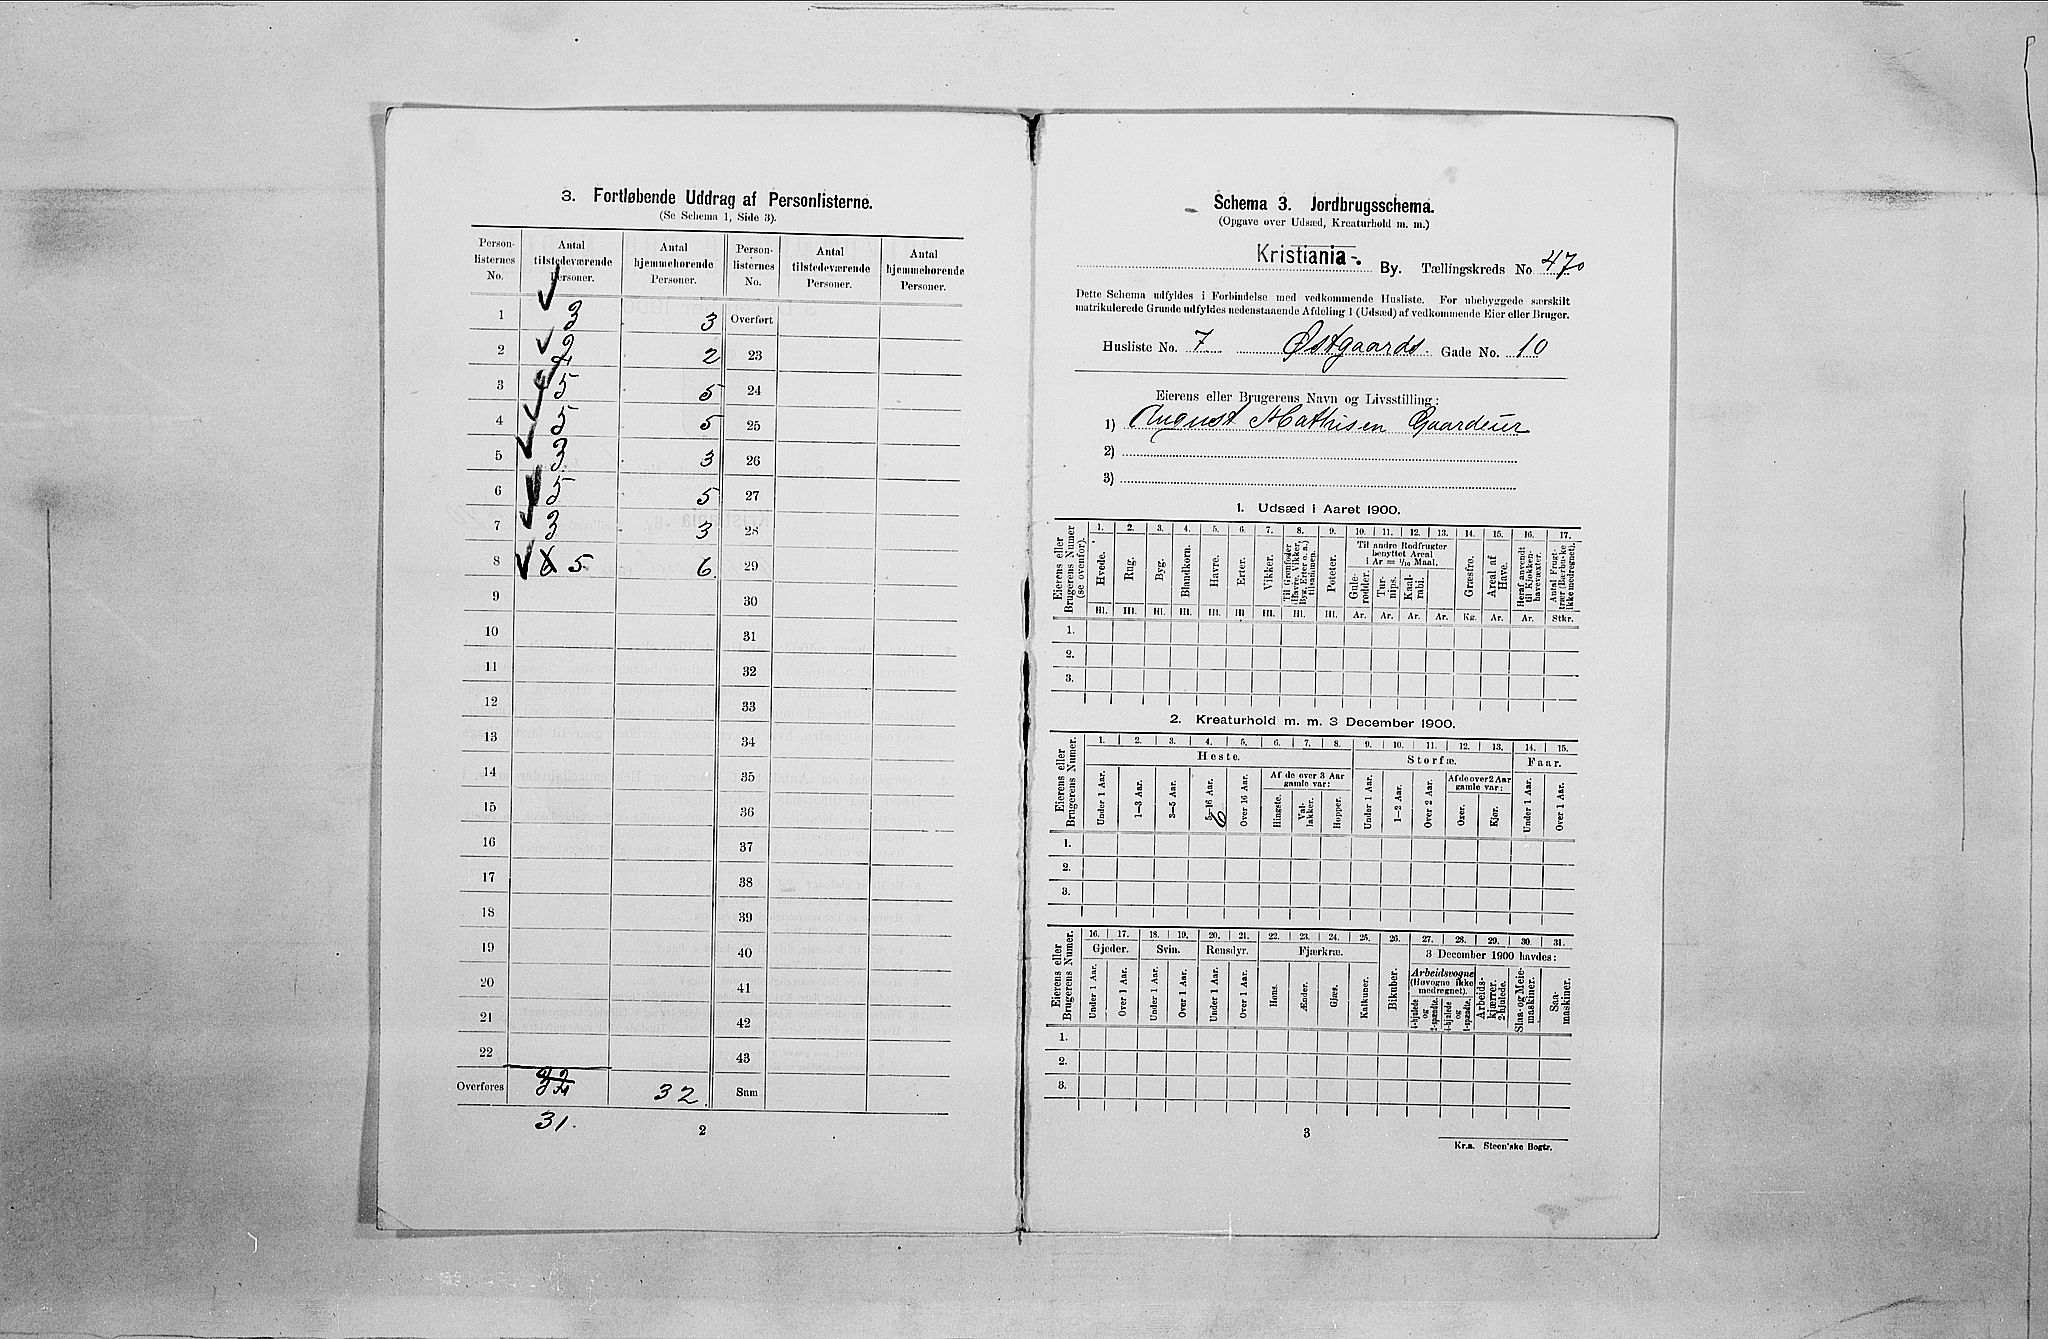 3. Fortløbende Uddrag af Personlisterne.
(Se Schema 1, Side 3).
Person-listernes No. | Antal tilstedeværende Personer. | Antal hjemmehørende Personer. | Person-listernes No. | Antal tilstedeværende Personer. | Antal hjemmehørende Personer.
1 | 3 | 3 | Overført
2 | 2 | 2 | 23
3 | 5 | 5 | 24
4 | 5 | 5 | 25
5 | 3 | 3 | 26
6 | 5 | 5 | 27
7 | 3 | 3 | 28
8 | 6 5 | 6. | 29
9 | 30
10 | 31
11 | 32
12 | 33
13 | 34
14 | 35
15 | 36
16 | 37
17 | 38
18 | 39
19 | 40
20 | 41
21 | 42
22 | 43
Overføres | 32 | 32. | Sum
31.
2
Schema 3. Jordbrugsschema.
(Opgave over Udsæd, Kreaturhold m. m.)
Kristiania. By. Tællingskreds No 470
Dette Schema udfyldes i Forbindelse med vedkommende Husliste. For ubebyggede særskilt
matrikulerede Grunde udfyldes nedenstaaende Afdeling 1 (Udsæd) af vedkommende Eier eller Bruger.
Husliste No. 7 Østgaards. Gade No. 10
Eierens eller Brugerens Navn og Livsstilling:
1) August Mathisen Gaardeier
2)
3)
1. Udsæd i Aaret 1900.
1. 2. 3. 4. 5. 6. 7. 8. 9. 10. 11. 12. 13. 14. 15. 16. 17.
Eierens eller Brugerens Numer (se ovenfor). | Hvede. | Rug. | Byg. | Blandkorn. | Havre. | Erter. | Vikker. | Til Grønfoder (Havre, Vikker, Byg, Erter o. a.) tilsaadanm. | Poteter. | Til andre Rodfrugter benyttet Areal i Ar = 1/10 Maal. | Gule-rødder. | Tur-nips. | Kaal-rabi. | Græsfrø. | Areal af Have. | Heraf anvendt til Kjøkken-havevæxter. | Antal Frugt-trær (Bærbuske ikke medregnet).
Hl. Hl. Hl. Hl. Hl. Hl. Hl. Hl. Hl. Ar. Ar. Ar. Ar. Kg. Ar. Ar. Stkr.
1.
2.
3.
2. Kreaturhold m. m. 3 December 1900.
1. 2. 3. 4. 5. 6. 7. 8. 9. 10. 11. 12. 13. 14. 15.
Eierens eller Brugerens Numer. | Heste. | Storfæ. | Faar.
Af de over 3 Aar gamle var: | Af de over 2 Aar gamle var:
Under 1 Aar. | 1–3 Aar. | 3–5 Aar. | 5–16 Aar. | Over 16 Aar. | Hingste. | Val-lakker. | Hopper. | Under 1 Aar. | 1–2 Aar. | Over 2 Aar. | Oxer. | Kjør. | Under 1 Aar. | Over 1 Aar.
6
1.
2.
3.
16. 17. 18. 19. 20. 21. 22. 23. 24. 25. 26. 27. 28. 29. 30. 31.
Eierens eller Brugerens Numer. | Gjeder. | Svin. | Rensdyr. | Fjærkræ. | Bikuber. | 3 December 1900 havdes:
Under 1 Aar. | Over 1 Aar. | Under 1 Aar. | Over 1 Aar. | Under 1 Aar. | Over 1 Aar. | Høns. | Ænder. | Gjæs. | Kalkuner. | Arbeidsvogne (Høvogne ikke medregnet). | 4-hjulede og 2-spændte. | 4-hjulede og 1-spændte. | Arbeids-kjærrer. 2-hjulede. | Slaa- og Meie-maskiner. | Saa-maskiner.
1.
2.
3.
3
Kr.a. Steen'ske Bogtr.